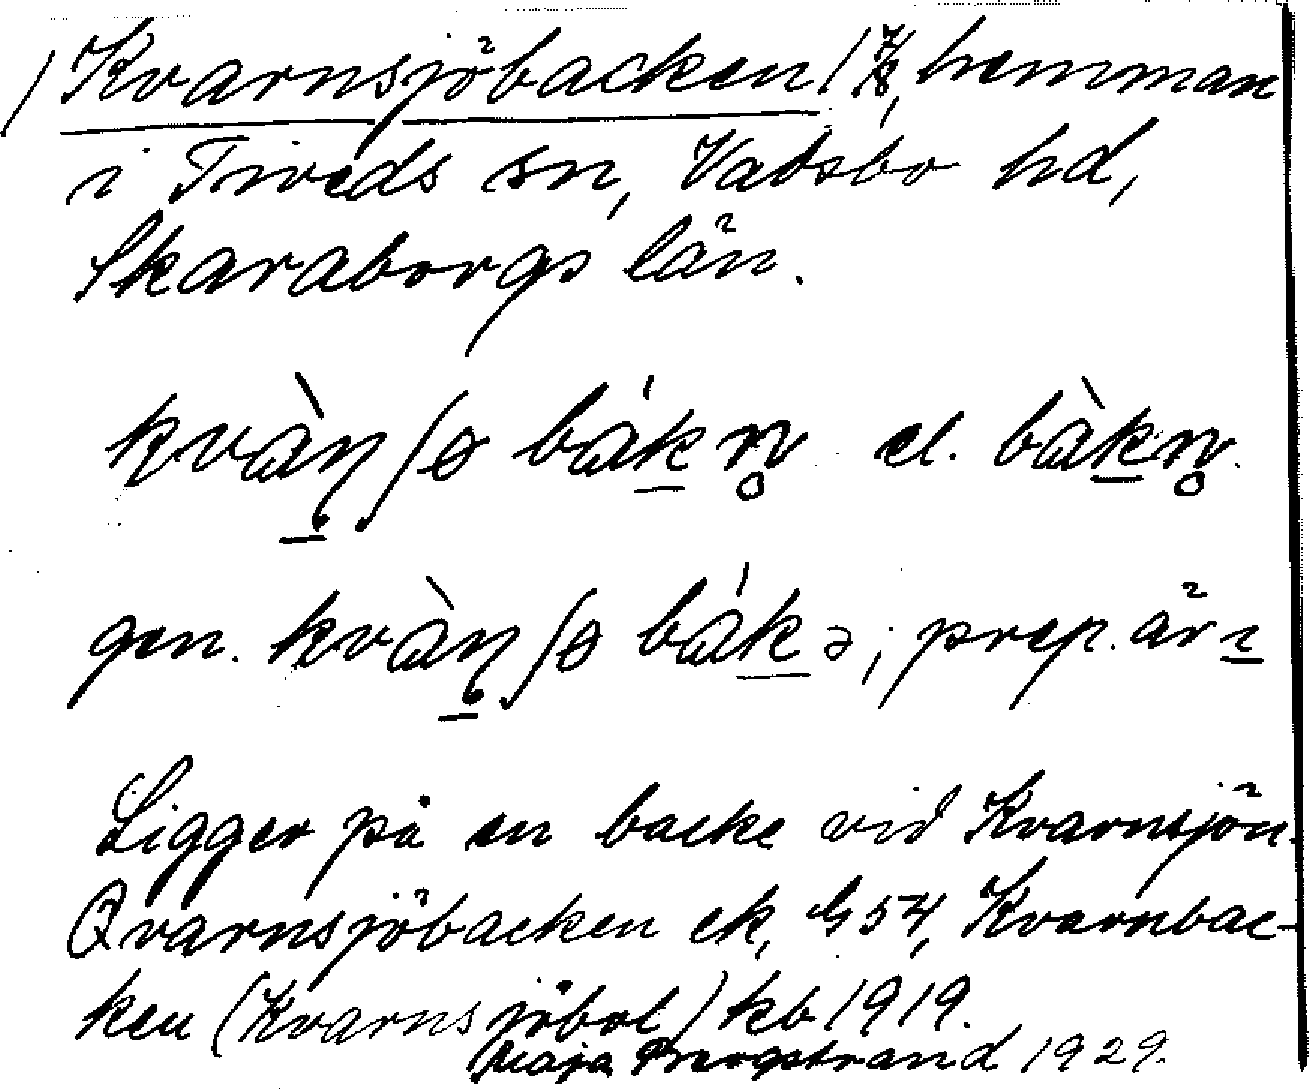 /Kvarnsjöbacken/ hemman
i Tiveds sn, Vadsbo hd,
Skaraborgs län.
kvàn̠ʃɵ bák̠n̥ el. bàk̠n̥.
gen. kvàn̠ʃɵ bák̠ə; prep. är i̠
Ligger på en backe vid Kvarnsjön.
Qvarnsjöbacken ek, G 54, Kvarnbac-
ken (Kvarnsjöbol) kb 1919.
Maja Bergstrand 1929.